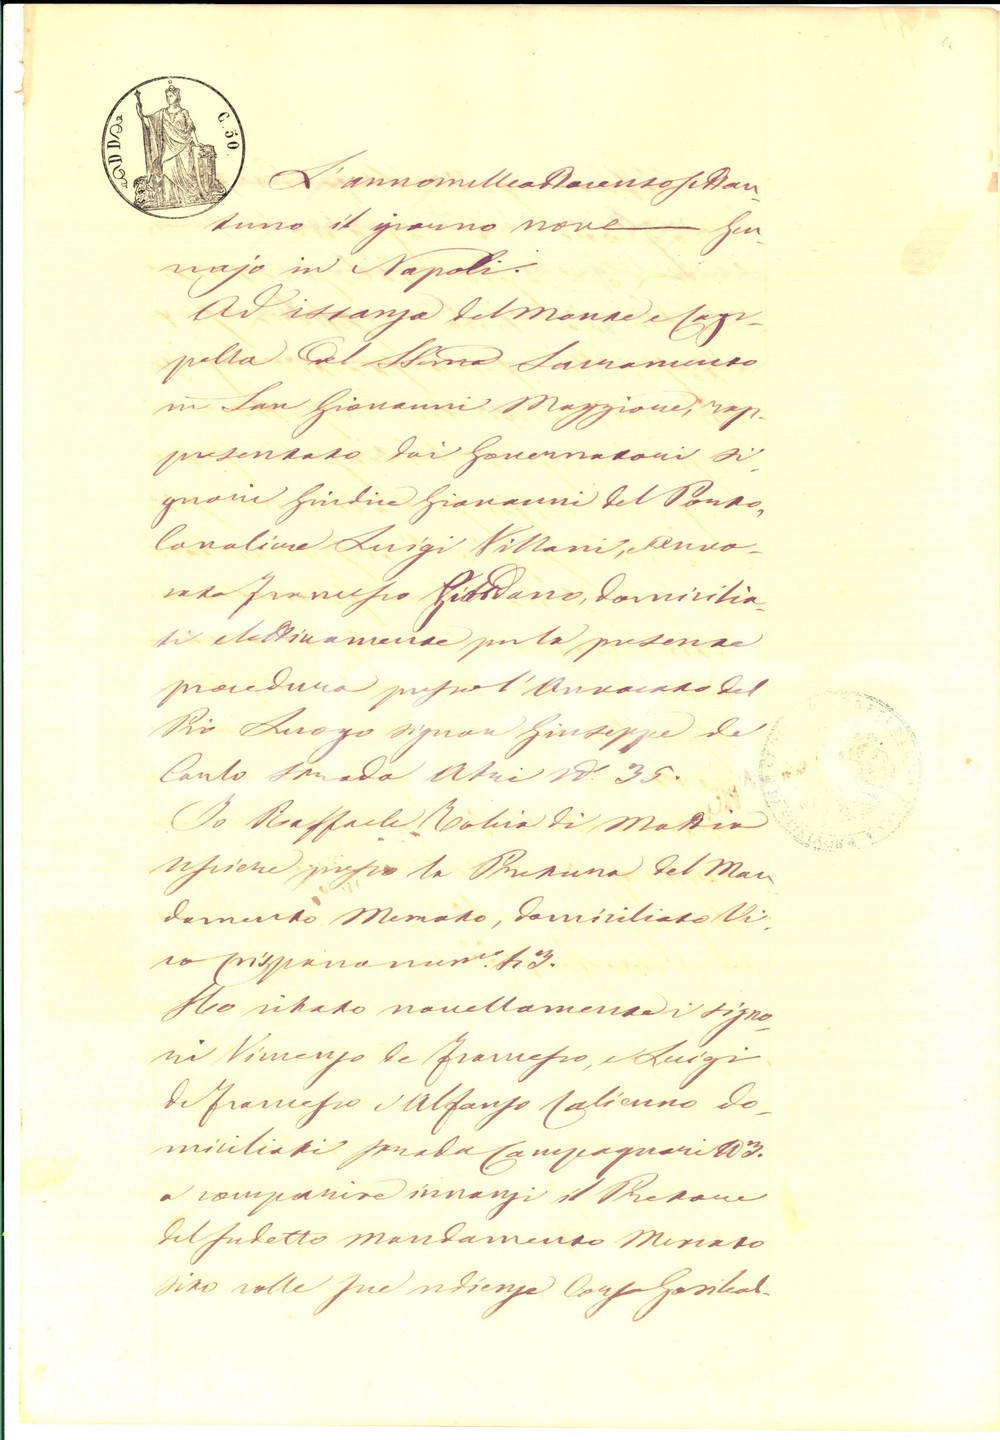 C. 50.
DD
L'anno mille ottocento settan-
tuno il giorno nove Gen-
najo in Napoli.
Ad istanza del Monte e Cap-
pella del SSmo Sacramento
in San Giovanni Maggiore, rap-
presentato dai Governatori si-
gnori Giudice Giovanni del Ponto,
Cavaliere Luigi Villani, Avvo-
cato Francesco Giordano, domicilia-
ti elettivamente per la presente
procedura presso l'Avvocato del
Pio Luogo signor Giuseppe de
Carlo strada Atri No. 35.
Io Raffaele Tobia di Mattia
usciere presso la Pretura del Man
damento Mercato, domiciliato Vi-
co Crispano num.o 43.
Ho citato novellamente i signo-
ri Vincenzo de Francesco, e Luigi
de Francesco e Alfonso Calienno do-
miciliati strada Campagnari N 3.
a comparire innanzi il Pretore
del sudetto Mandamento Mercato
sito colle sue udienze Corso Garibal-